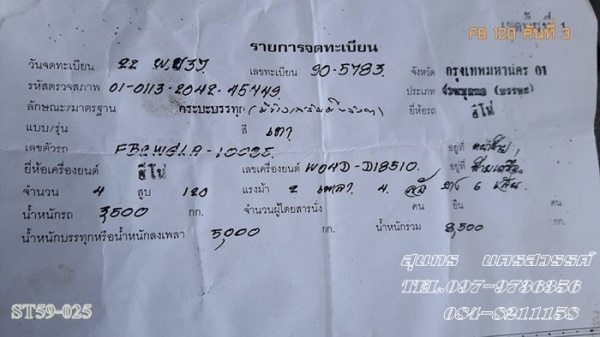 FB 120 คันที่ 3
รายการจดทะเบียน
วันจดทะเบียน 22 พ.ย 37 เลขทะเบียน 90-5783 จังหวัด กรุงเทพมหานคร 01
รหัสตรวจสภาพ 01-0113-2042-45449 ประเภท
ลักษณะ/มาตรฐาน กระบะบรรทุก ยี่ห้อรถ ฮีโน่
แบบ/รุ่น สี เทา
เลขตัวรถ อยู่ที่
ยี่ห้อเครื่องยนต์ ฮีโน่ เลขเครื่องยนต์ WO4D-D18510 อยู่ที่
จำนวน 4 สูบ 120 แรงม้า 2 เพลา 4 ล้อ ยาง 6 เส้น
น้ำหนักรถ 3,500 กก. จำนวนผู้โดยสารนั่ง คน ยืน คน
น้ำหนักบรรทุกหรือน้ำหนักลงเพลา 5,000 กก. น้ำหนักรวม 8,500 กก.
สุนทร นครสวรรค์
TEL.097-9786856
084-8211158
ST59-025